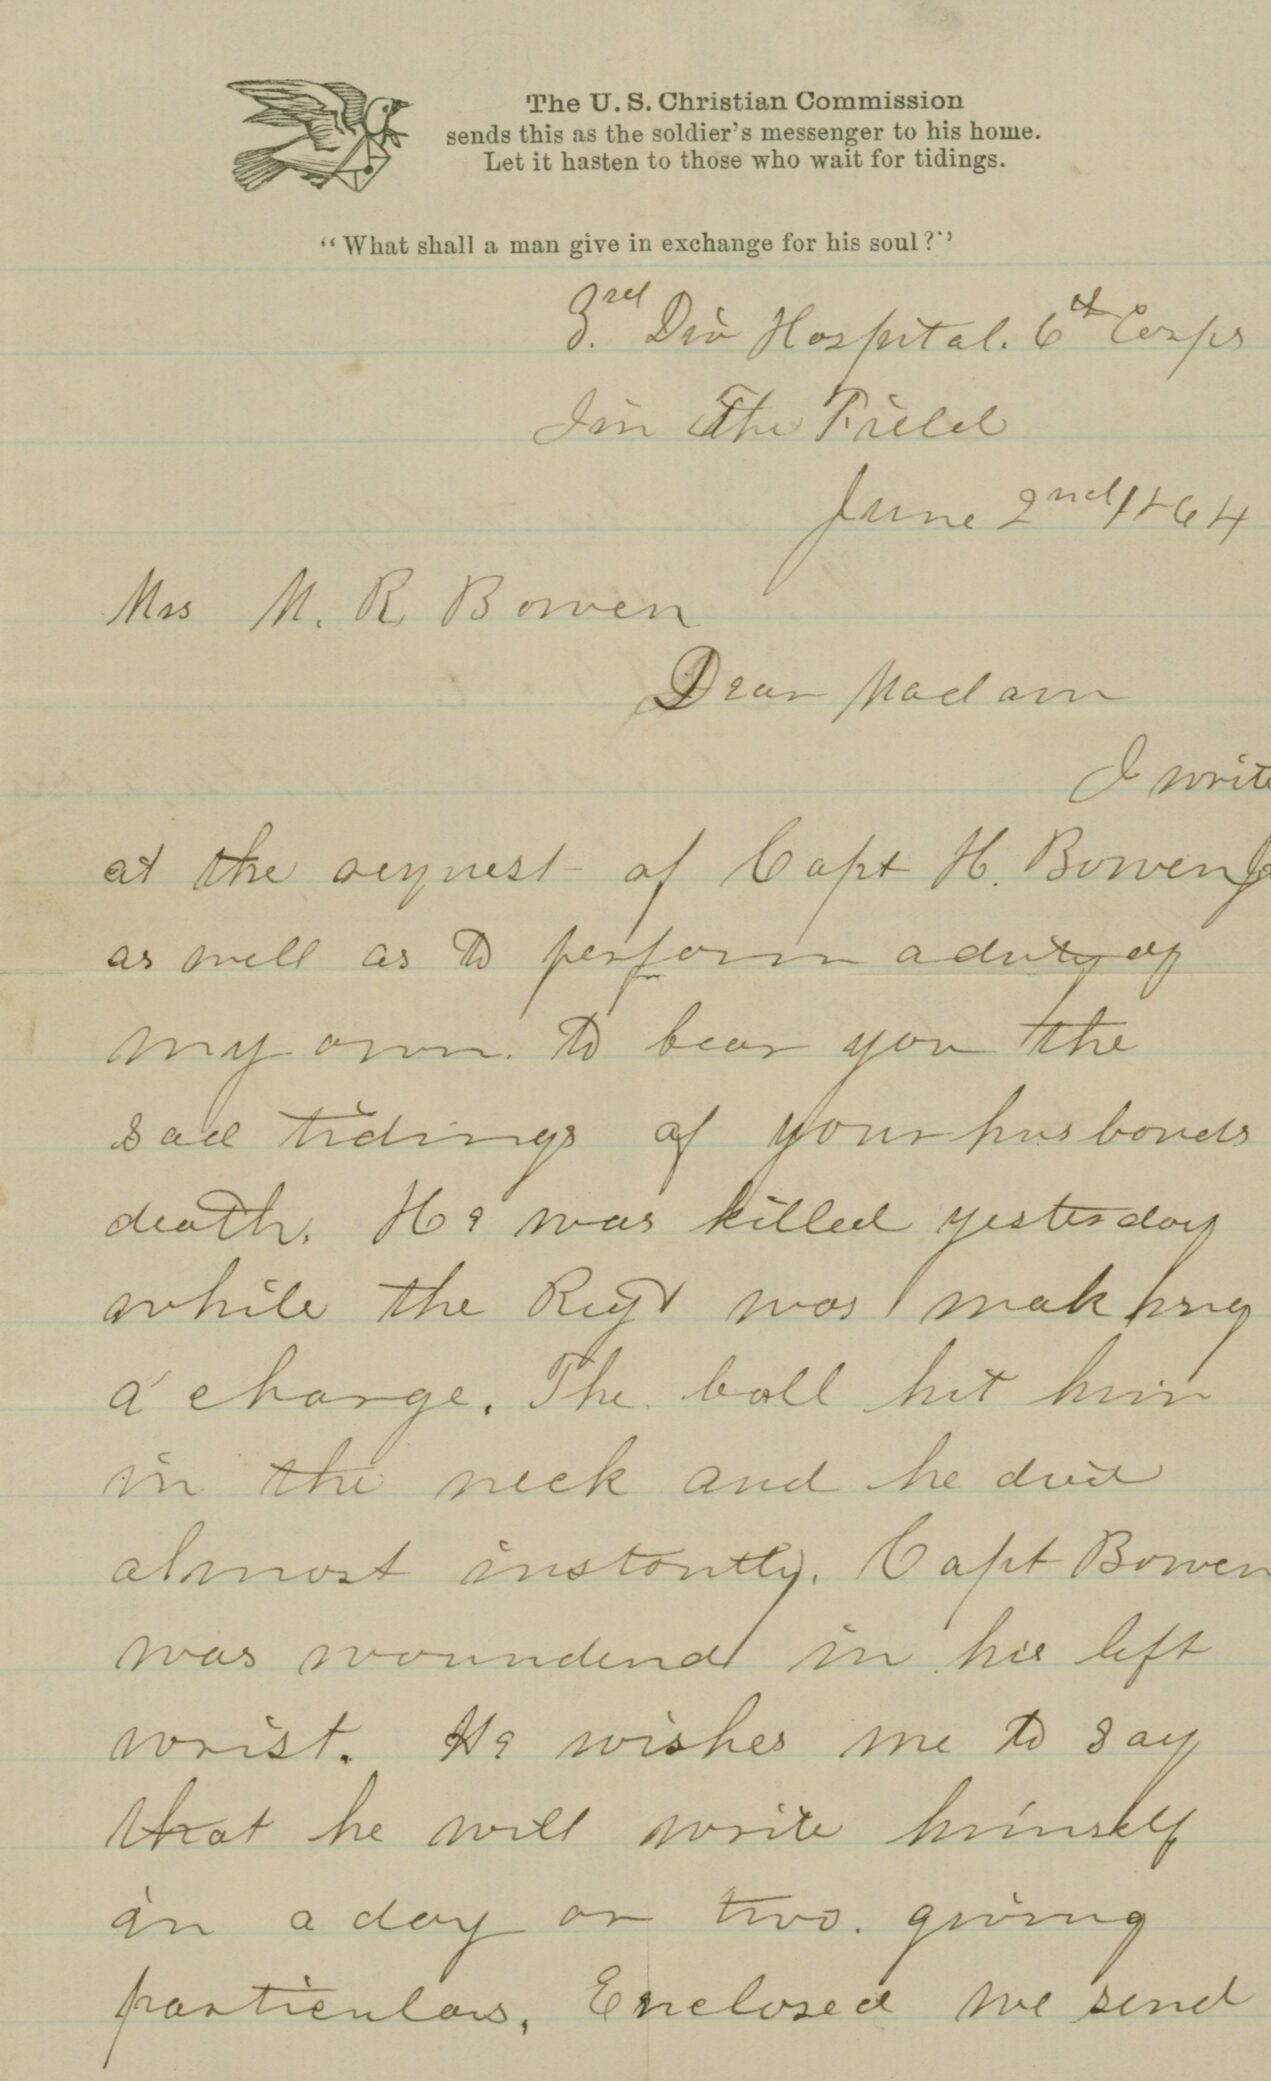 The U. S. Christian Commission
sends this as the soldier's messenger to his home.
Let it hasten to those who wait for tidings.
"What shall a man give in exchange for his soul?"
3rd Div Hospital. 6th Corps
In The Field
June 2nd 1864
Mrs M. R Bowen
Dear Madam
I write
at the request of Capt H. Bowen Jr
as well as to perform a duty of
my own. to bear you the
sad tidings of your husbands
death. He was killed yesterday
while the Regt was making
a charge. The ball hit him
in the neck and he died
almost instantly. Capt Bowen
was woundend in his left
wrist. He wishes me to say
that he will write himself
in a day or two. giving
particulars. Enclosed we send